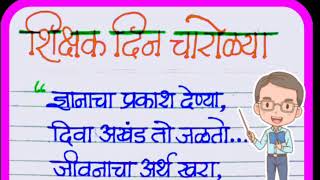 शिक्षक दिन चारोळ्या
“ ज्ञानाचा प्रकाश देण्या,
दिवा अखंड तो जळतो...
जीवनाचा अर्थ खरा,